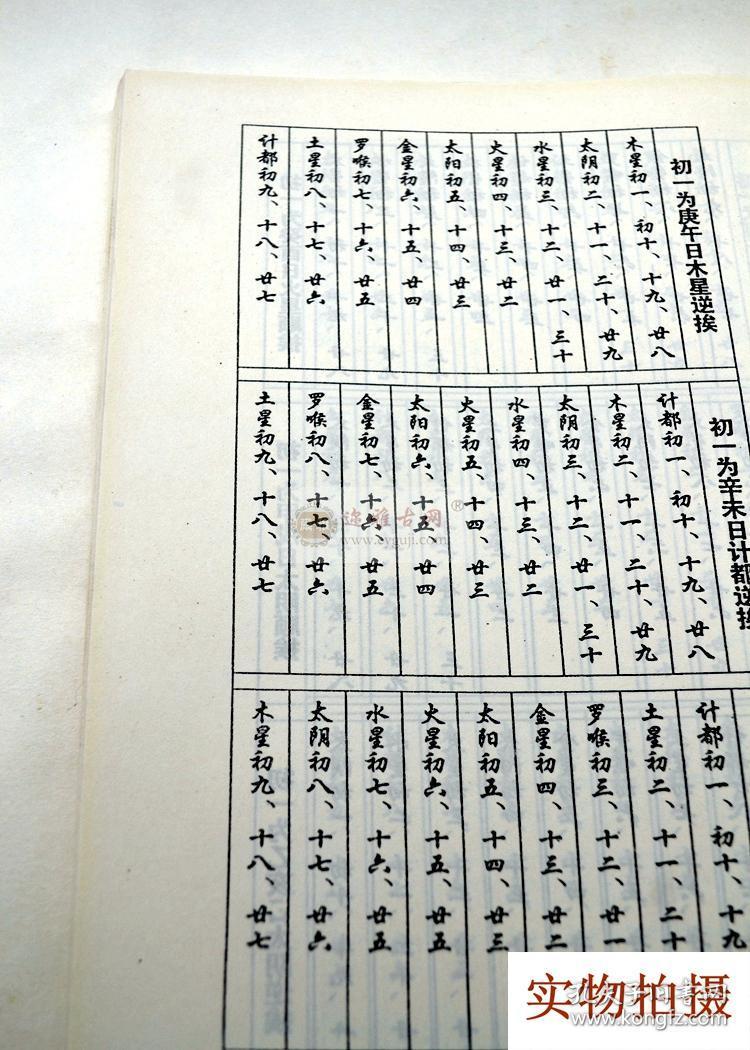 初一为庚午日木星逆挨
木星初一、初十、十九、廿八
太阴初二、十一、二十、廿九
水星初三、十二、廿一、三十
火星初四、十三、廿二
太阳初五、十四、廿三
金星初六、十五、廿四
罗喉初七、十六、廿五
土星初八、十七、廿六
计都初九、十八、廿七
初一为辛未日计都逆挨
计都初一、初十、十九、廿八
木星初二、十一、二十、廿九
太阴初三、十二、廿一、三十
水星初四、十三、廿二
火星初五、十四、廿三
太阳初六、十五、廿四
金星初七、十六、廿五
罗喉初八、十七、廿六
土星初九、十八、廿七
计都初一、初十、十九
土星初二、十一、二十
罗喉初三、十二、廿一
金星初四、十三、廿二
太阳初五、十四、廿三
火星初六、十五、廿五
水星初七、十六、廿五
太阴初八、十七、廿六
木星初九、十八、廿七
www.cyguji.com
实物拍摄
孔夫子旧书网
www.kongfz.com